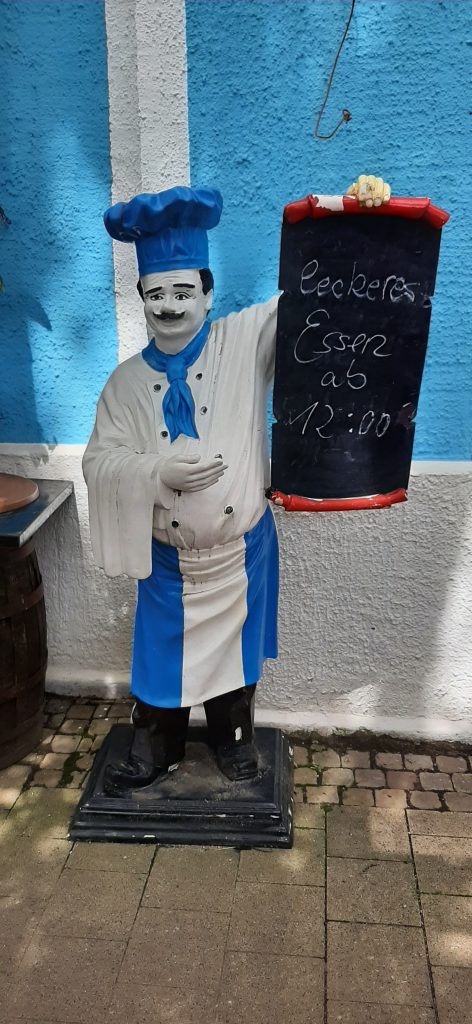 leckeres
Essen
ab
12:00